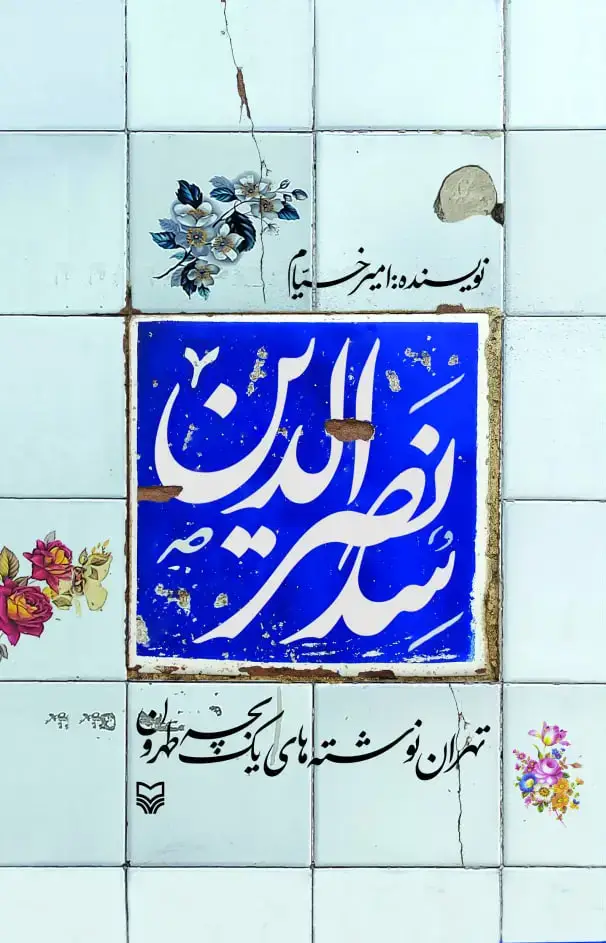 نویسنده: امیر خیّام
سِد نَصرالدین
تهران نوشته‌های یک بچه طهرون